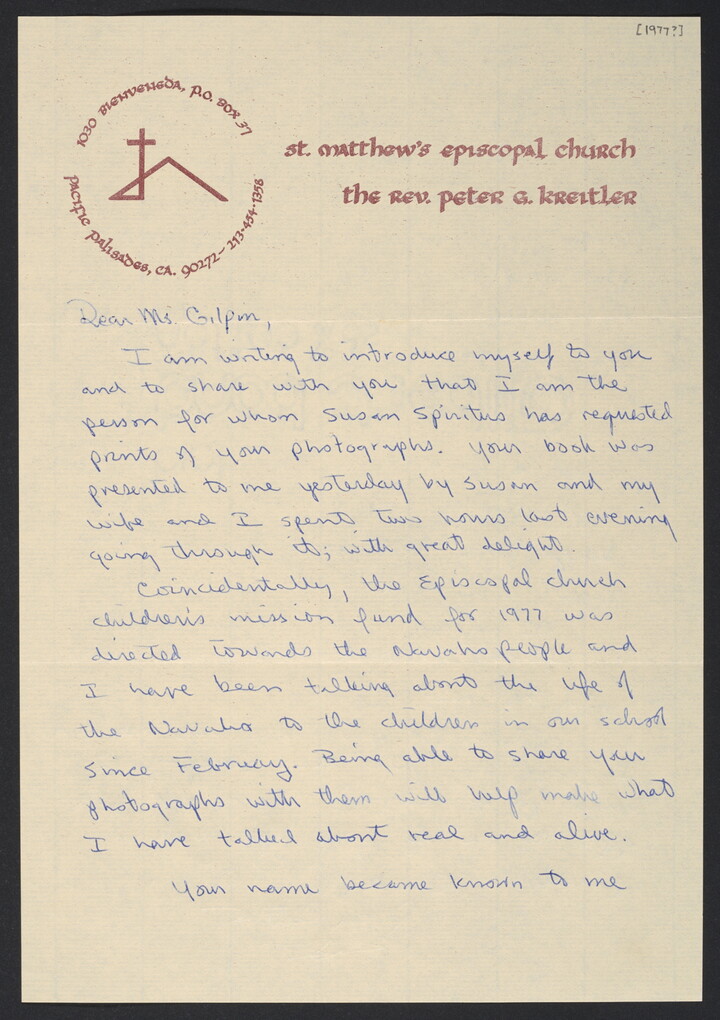 [1977?]
1030 Bienveneda, P.O. Box 37
Pacific Palisades, CA. 90272 - 213-454-1358
St. Matthew's Episcopal Church
The Rev. Peter G. Kreitler
Dear Ms. Gilpin,
I am writing to introduce myself to you
and to share with you that I am the
person for whom Susan Spiritus has requested
prints of your photographs. Your book was
presented to me yesterday by Susan and my
wife and I spent two hours last evening
going through it; with great delight.
Coincidentally, the Episcopal church
children's mission fund for 1977 was
directed towards the Navaho people and
I have been talking about the life of
the Navaho to the children in our school
since February. Being able to share your
photographs with them will help make what
I have talked about real and alive.
Your name became known to me